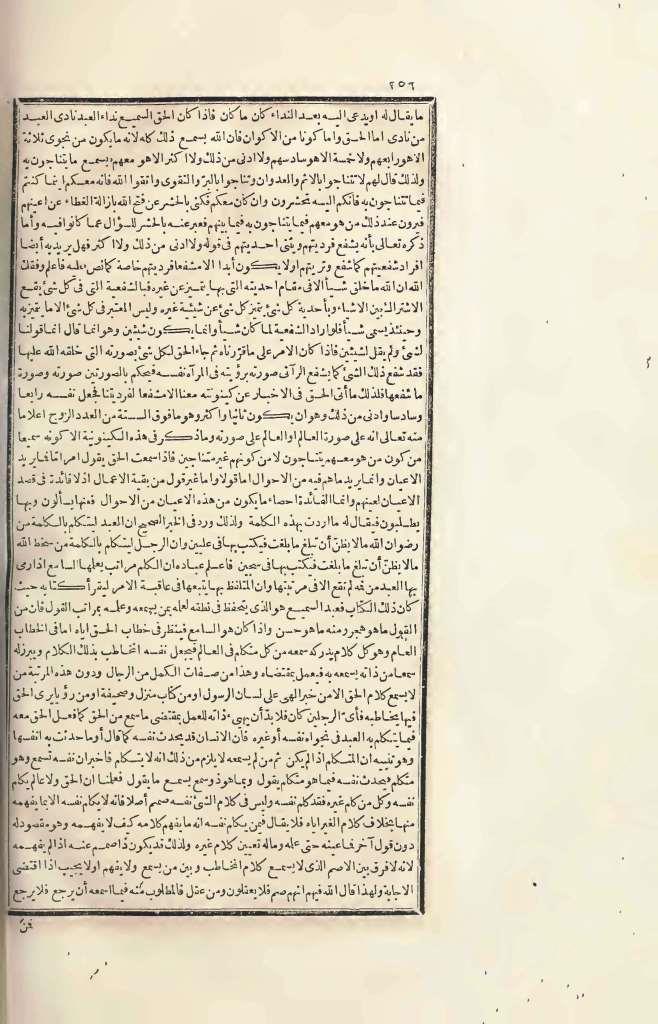 ٢٥٦
ما يقال له او يدعى اليه بعد النداء كان ما كان فاذا كان الحق السميع نداء العبد نادى العبد
من نادى اما الحق واما كونا من الاكوان فان الله يسمع ذلك كله لانه ما يكون من نجوى ثلاثة
الا هو رابعهم ولا خمسة الا هو سادسهم ولا ادنى من ذلك ولا اكثر الا هو معهم يسمع ما يتناجون به
ولذلك قال لهم لا تتناجوا بالاثم والعدوان وتناجوا بالبرّ والتقوى واتقوا الله فانه معكم اينما كنتم
فيما تتناجون به فانكم اليه تحشرون وان كان معكم فكنى بالحشر عن فتح الله بازالة الغطاء عن اعينهم
فيرون عند ذلك من هو معهم فيما يتناجون به فيما بينهم فعبر عنه بالحشر للسؤال عما كانوا فيه وأما
ذكره تعالى بأنه يشفع فرديتهم ويثنى احديتهم فى قوله ولا ادنى من ذلك ولا اكثر فهل يريد به أيضا
افراد شفعيتهم كما شفع وتريتهم اولا يكون أبدا الا مشفعا فرديتهم خاصة كما نص عليه فاعلم وفقك
الله ان الله ما خلق شيأ الا فى مقام احديته التى بها يتميز عن غيره فبالشفعية التى فى كل شئ يقع
الاشتراك بين الاشياء وبأحدية كل شئ يتميز كل شئ عن شيئية غيره وليس المعتبر فى كل شئ الا ما يتميز به
وحينئذ يسمى شيأ فلو اراد الشفعية لما كان شيأ وانما يكون شيئين وهو انما قال انما قولنا
لشئ ولم يقل لشيئين فاذا كان الامر على ما قررناه ثم جاء الحق لكل شئ بصورته التى خلقه الله عليها
فقد شفع ذلك الشئ كما يشفع الرآئى صورته برؤيته فى المرآه نفسه فيحكم بالصورتين صورته وصورة
ما شفعها فلذلك ما أتى الحق فى الاخبار عن كينونته معنا الا مشفعا لفرديتنا فجعل نفسه رابعا
وسادسا وادنى من ذلك وهو ان يكون ثانيا واكثر وهو ما فوق الستة من العدد الزوج اعلاما
منه تعالى انه على صورة العالم او العالم على صورته وما ذكر فى هذه الكينونية الا كونه سميعا
من كون من هو معهم يتناجون لا من كونهم غير متناجين فاذا سمعت الحق يقول امرا ما فما يريد
الاعيان وانما يريد ما هم فيه من الاحوال اما قولا واما غير قول من بقية الاعمال اذ لا فائدة فى قصد
الاعيان لعينهم وانما الفائدة احصاء ما يكون من هذه الاعيان من الاحوال فعنها يسألون وبها
يطلبون فيقال له ما اردت بهذه الكلمة ولذلك ورد فى الخبر الصحيح ان العبد ليتكلم بالكلمة من
رضوان الله ما لا يظنّ أن تبلغ ما بلغت فيكتب بها فى عليين وان الرجل ليتكلم بالكلمة من سخط الله
ما لا يظن أن تبلغ ما بلغت فيكتب بها فى سجين فاعلم عباده ان للكلم مراتب يعلمها السامع اذا رمى
بها العبد من فمه لم تقع الا فى مرتبتها وان المتلفظ بها يتبعها فى عاقبة الامر ليقرأ كتابه حيث
كان ذلك الكتاب فعبد السميع هو الذى يتحفظ فى نطقه لعلمه بمن يسمعه وعلمه بمراتب القول فان من
القول ما هو هجر ومنه ما هو حسن واذا كان هو السامع فينظر فى خطاب الحق اياه اما فى الخطاب
العام وهو كل كلام يدركه سمعه من كل متكلم فى العالم فيجعل نفسه المخاطب بذلك الكلام ويبرز له
سمعا من ذاته يسمعه به فيعمل بمقتضاه وهذا من صفات الكمل من الرجال ودون هذه المرتبة من
لا يسمع كلام الحق الا من خبر الهى على لسان الرسول او من كتاب منزل وصحيفة او من رؤيا يرى الحق
فيها يخاطبه فأىّ الرجلين كان فلا بدّ أن يهيئ ذاته للعمل بمقتضى ما سمع من الحق كما فعل الحق معه
فيما يتكلم به العبد فى نجواه نفسه أو غيره فان الانسان قد يحدث نفسه كما قال أو ما حدثت به انفسها
وهو تنبيه ان المتكلم اذا لم يكن ثم من لم يسمعه لا يلزم من ذلك انه لا يتكلم فاخبر ان نفسه تسمع وهو
متكلم فيحدث نفسه فيما هو متكلم يقول وبما هو ذو سمع يسمع ما يقول فعلمنا ان الحق ولا عالم يكلم
نفسه وكل من كلم غيره فقد كلم نفسه وليس فى كلام الشئ نفسه صمم أصلا فانه لا يكلم نفسه الا بما يفهمه
منها بخلاف كلام الغير اياه فلا يقال فيمن يكلم نفسه انه ما يفهم كلامه كيف لا يفهمه وهو مقصود له
دون قول آخر فما عينه حتى علمه وماله تعيين كلام غيره ولذلك قد يكون ذا صمم عنه اذ الم يفهمه
لانه لا فرق بين الاصم الذى لا يسمع كلام المخاطب وبين من يسمع ولا يفهم اولا يجيب اذا اقتضى
الاجابة ولهذا قال الله فيهم انهم صم فلا يعقلون ومن عقل فالمطلوب منه فيما اسمعه أن يرجع فلا يرجع
فمن